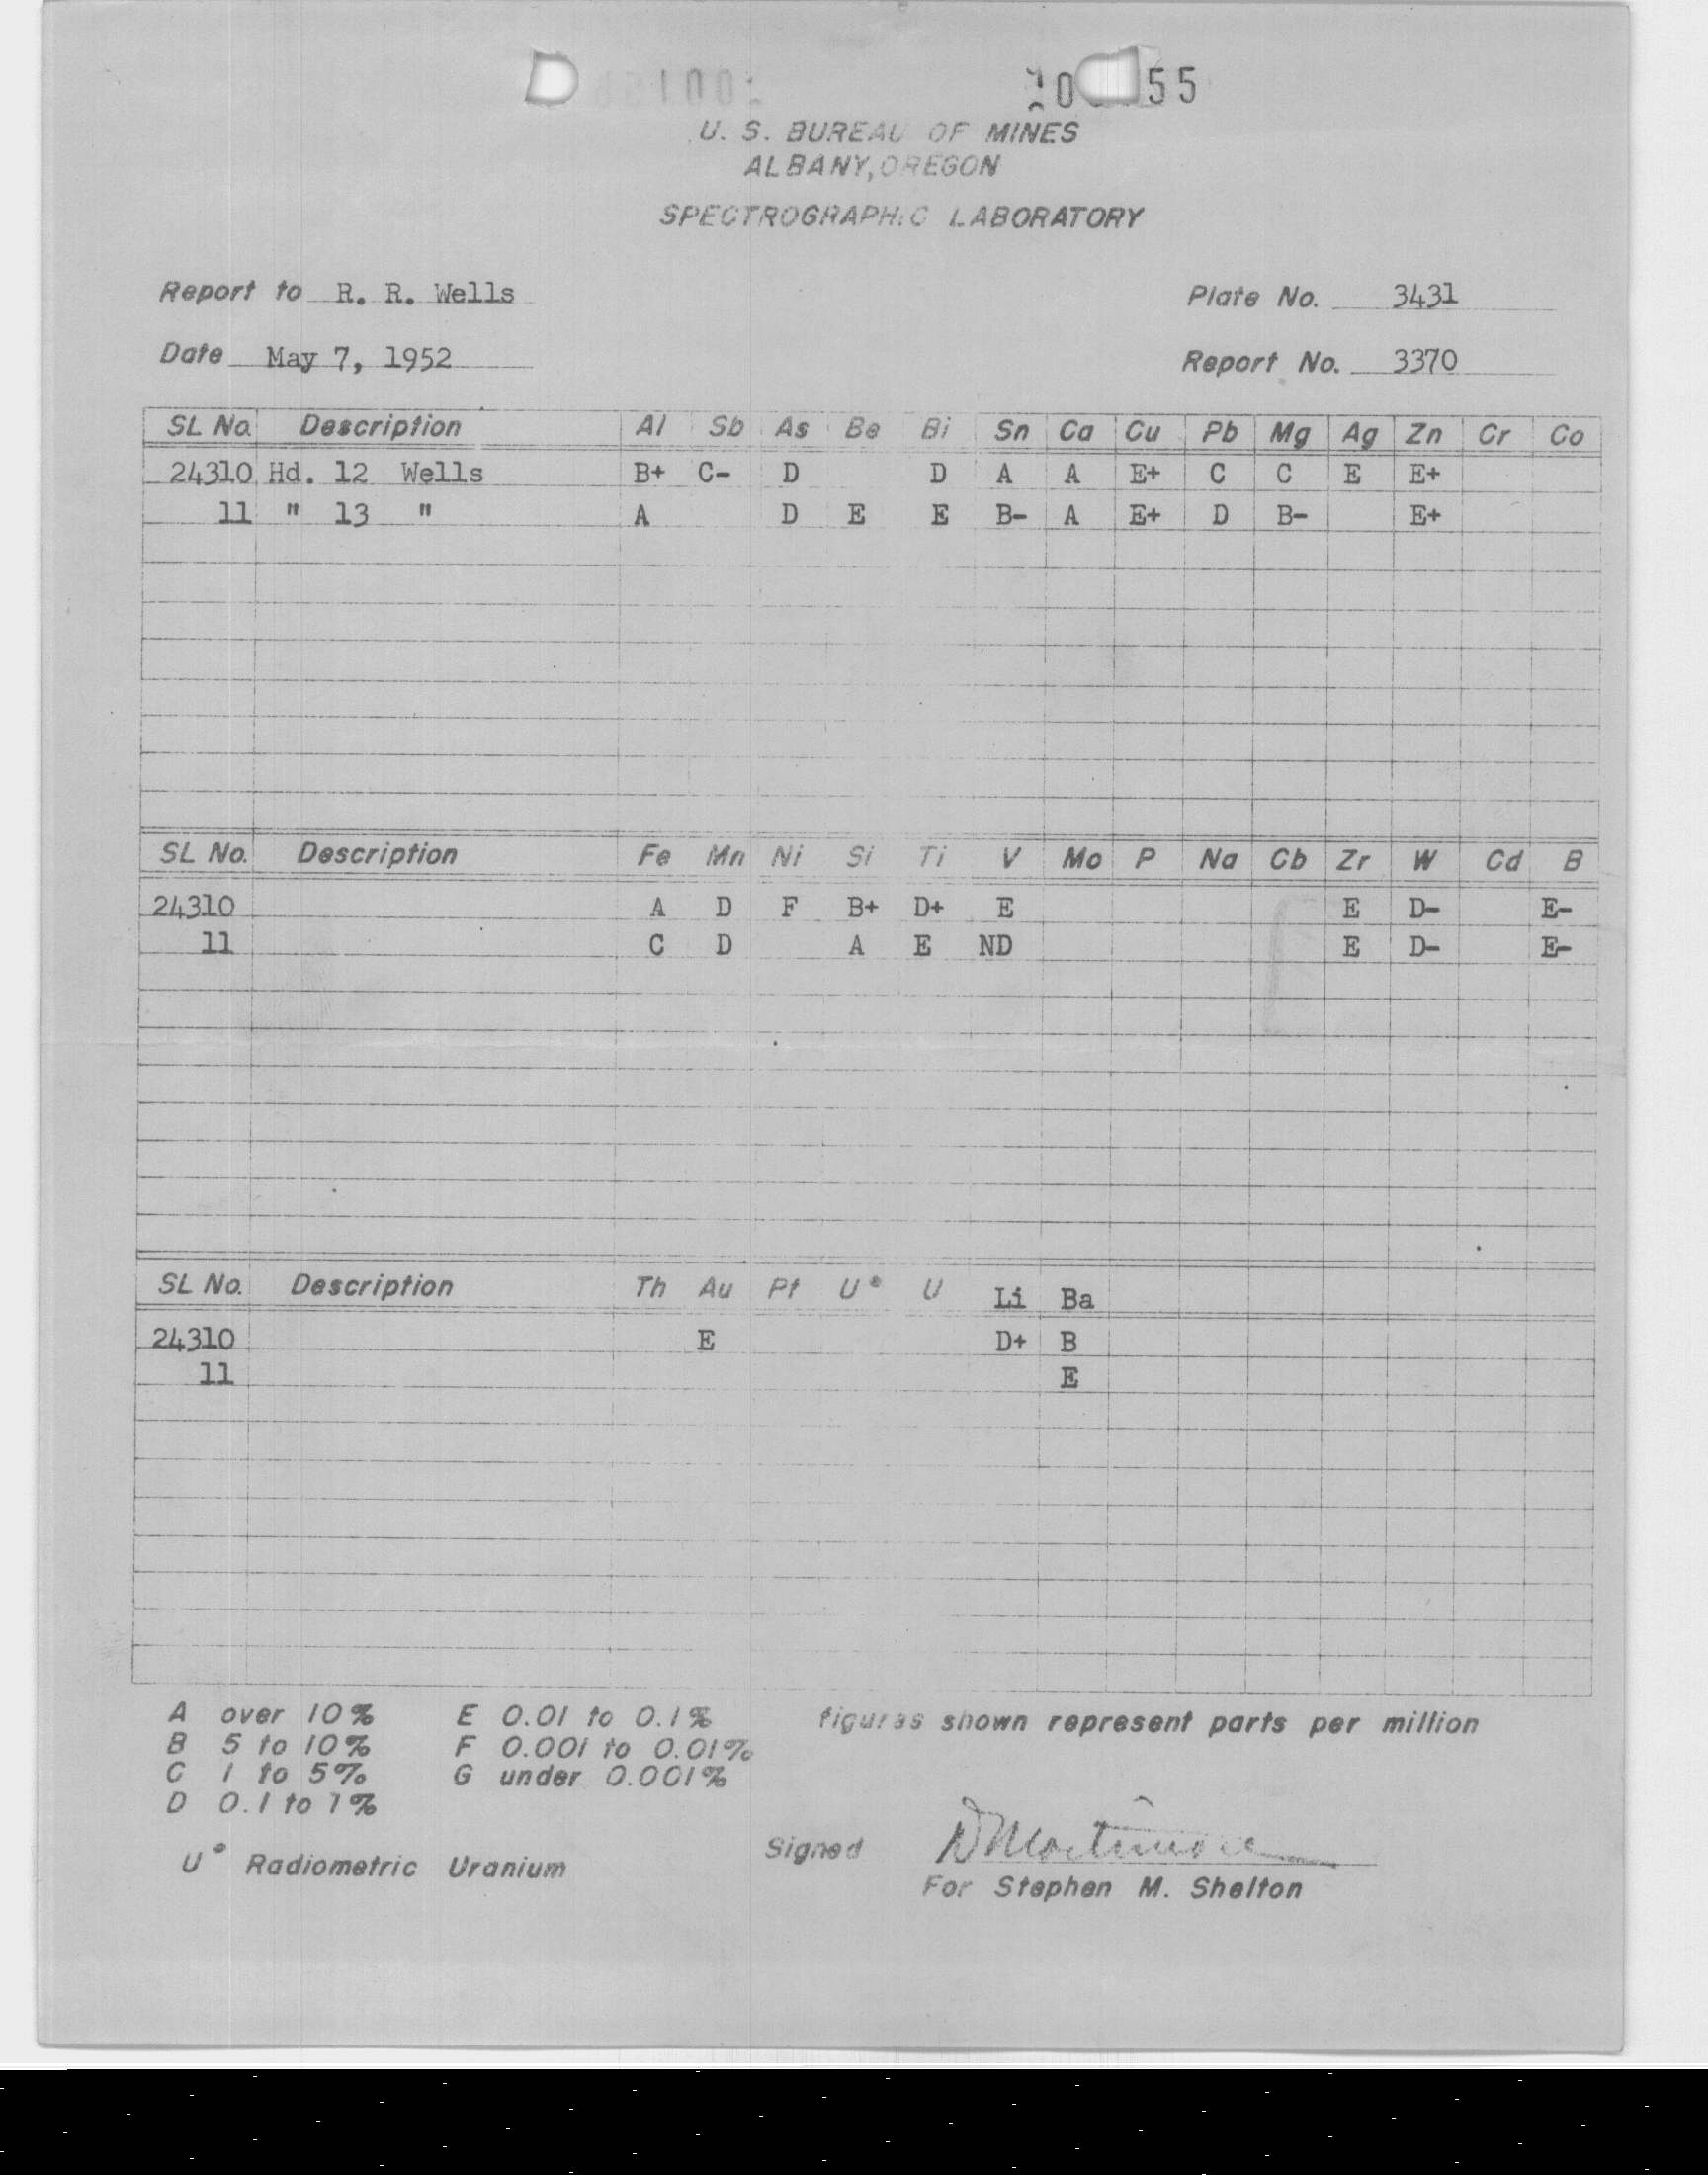 55
U. S. BUREAU OF MINES
ALBANY, OREGON
SPECTROGRAPHIC LABORATORY
Report to R. R. Wells Plate No. 3431
Date May 7, 1952 Report No. 3370
SL No. Description Al Sb As Be Bi Sn Ca Cu Pb Mg Ag Zn Cr Co
24310 Hd. 12 Wells B+ C- D D A A E+ C C E E+
11 " 13 " A D E E B- A E+ D B- E+
SL No. Description Fe Mn Ni Si Ti V Mo P Na Cb Zr W Cd B
24310 A D F B+ D+ E E D- E-
11 C D A E ND E D- E-
SL No. Description Th Au Pt U* U Li Ba
24310 E D+ B
11 E
A over 10% E 0.01 to 0.1% figures shown represent parts per million
B 5 to 10% F 0.001 to 0.01%
C 1 to 5% G under 0.001%
D 0.1 to 1%
U* Radiometric Uranium Signed
For Stephen M. Shelton